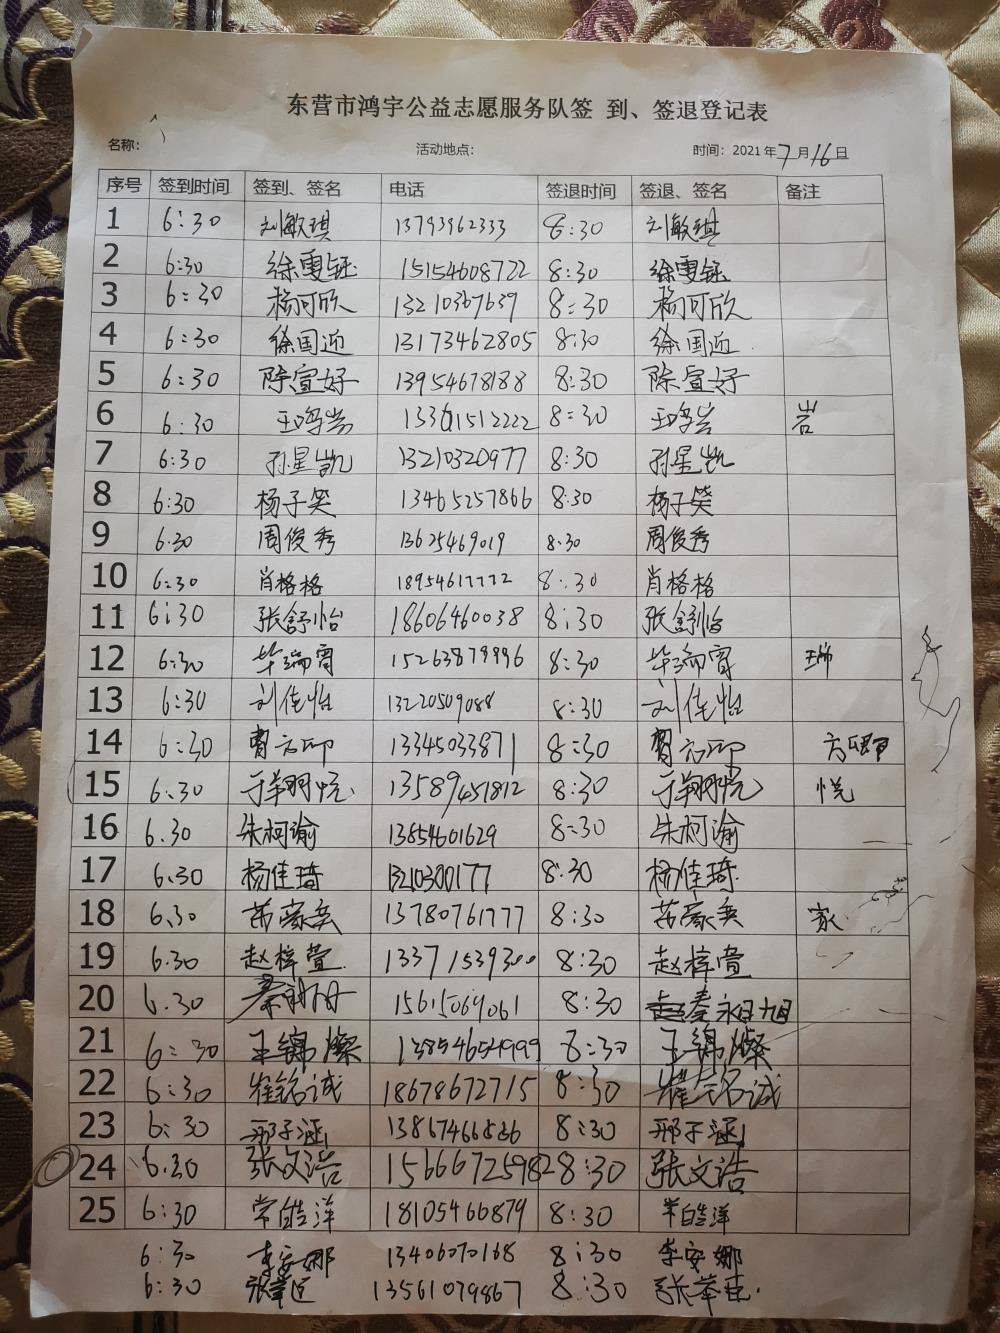 东营市鸿宇公益志愿服务队签 到、签退登记表
名称： 活动地点： 时间：2021年7月16日
序号 签到时间 签到、签名 电话 签退时间 签退、签名 备注
1 6:30 刘敏琪 13793962333 8:30 刘敏琪
2 6:30 徐雯钰 15154608722 8:30 徐雯钰
3 6:30 杨可欣 13210367639 8:30 杨可欣
4 6:30 徐国近 13173462805 8:30 徐国近
5 6:30 陈宣好 13954678188 8:30 陈宣好
6 6:30 8:30 岩
7 6:30 孙星凯 13210320977 8:30 孙星凯
8 6:30 杨子笑 13465257866 8:30 杨子笑
9 6.30 周俊秀 13625469019 8:30 周俊秀
10 6:30 肖格格 18954617772 8:30 肖格格
11 6:30 张舒怡 18606460038 8:30 张舒怡
12 6:30 毕瑞宵 15263879996 8:30 毕瑞宵 瑞
13 6:30 刘佳怡 13220509088 8:30 刘佳怡
14 6:30 13345033871 8:30
15 6:30 于翔悦 13589451812 8:30 于翔悦 悦
16 6.30 朱柯谕 13854601629 8:30 朱柯谕
17 6.30 杨佳琦 13210300177 8:30 杨佳琦
18 6.30 苗家奕 13780761777 8:30 苗家奕 家
19 6.30 赵梓萱 13371539300 8:30 赵梓萱
20 6.30 15615069061 8:30
21 6:30 王锦燦 13854654999 8:30 王锦燦
22 6:30 崔铭诚 18678672715 8:30 崔铭诚
23 6:30 邢子涵 8:30 邢子涵
24 6.30 张文浩 15666725982 8:30 张文浩
25 6:30 常皓洋 18105466879 8:30
6:30 李安娜 13406070168 8:30 李安娜
6:30 13561079867 8:30